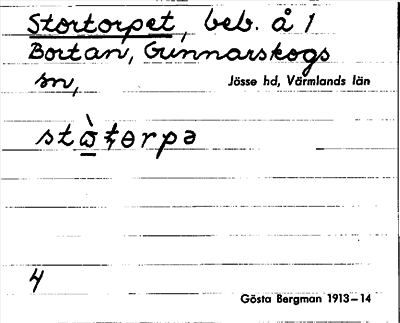 Stortorpet, beb. å 1
Bortan, Gunnarskogs
sn,
Jösse hd, Värmlands län
stὼ̲ŧɵrpə
4
Gösta Bergman 1913–14